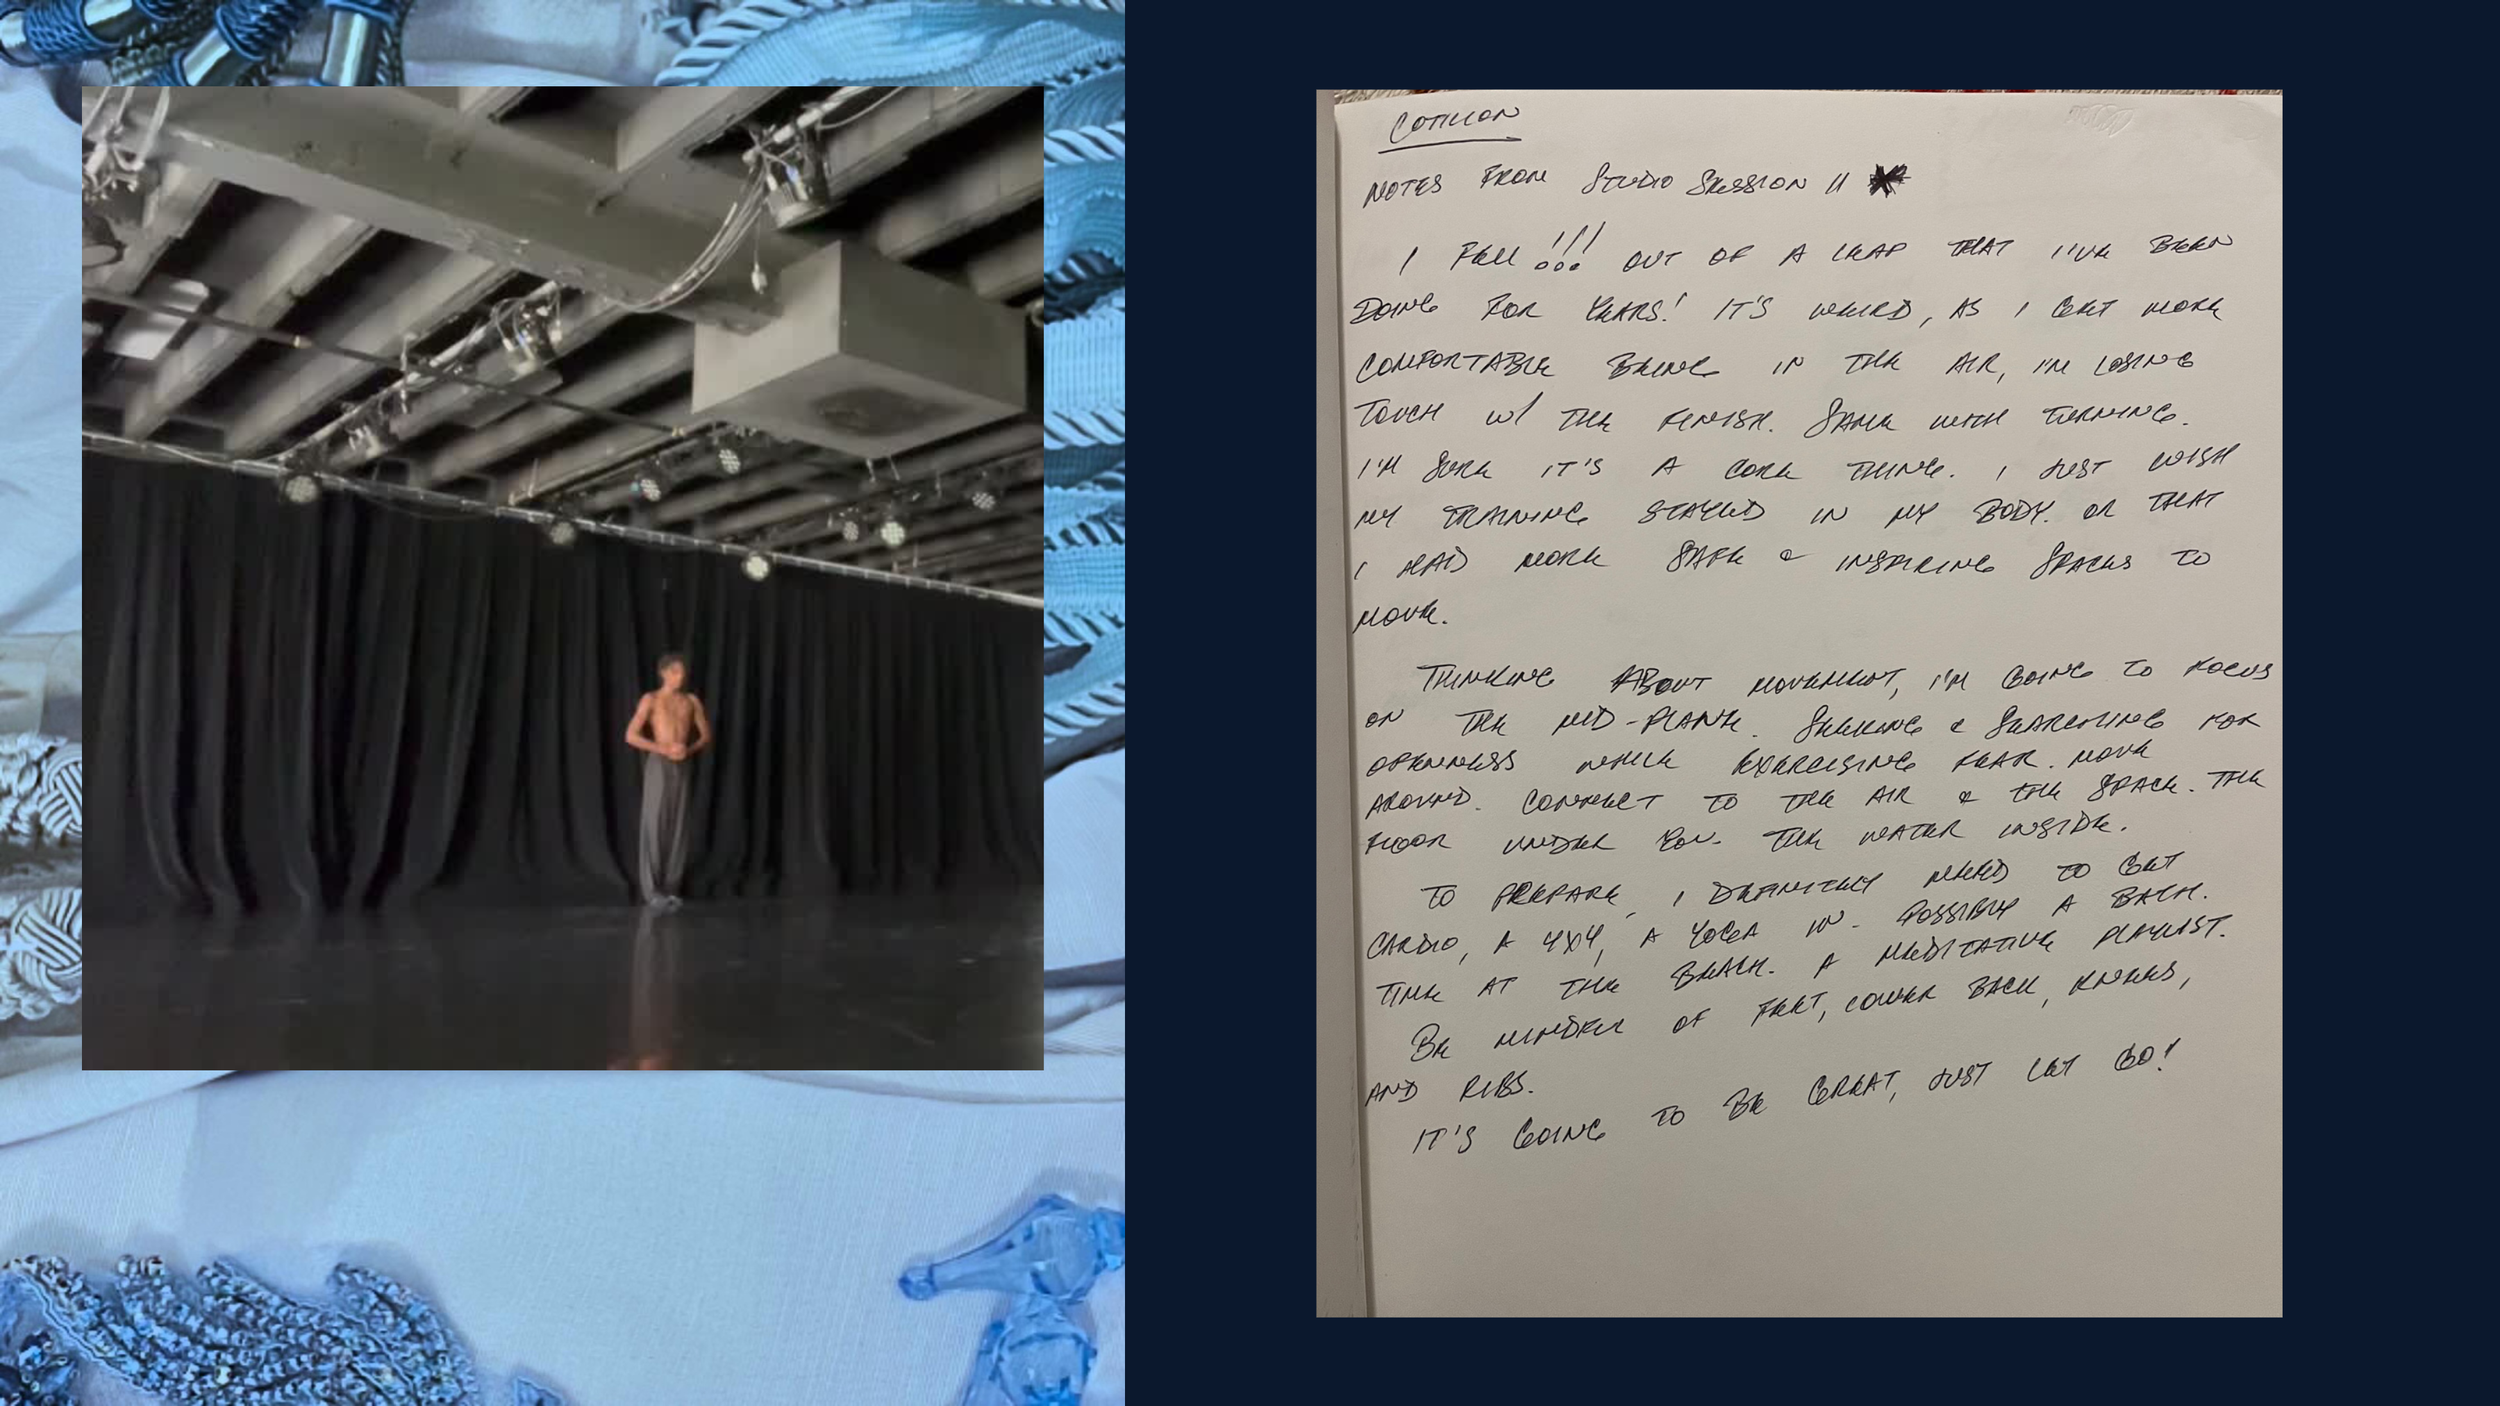 COTILLION
NOTES FROM STUDIO SESSION II
I FELL!!! OUT OF A LEAP THAT I'VE BEEN
DOING FOR YEARS! IT'S WEIRD, AS I GET MORE
COMFORTABLE BEING IN THE AIR, I'M LOSING
TOUCH W/ THE FINISH. SAME WITH TURNING.
I'M SURE IT'S A CORE THING. I JUST WISH
MY TRAINING STAYED IN MY BODY. OR THAT
I HAD MORE SAFE & INSPIRING SPACES TO
MOVE.
THINKING ABOUT MOVEMENT, I'M GOING TO FOCUS
ON THE MID-PLANE. SEEKING & SEARCHING FOR
OPENNESS WHILE EXERCISING FEAR. MOVE
AROUND. CONNECT TO THE AIR & THE SPACE. THE
FLOOR UNDER YOU. THE WATER INSIDE.
TO PREPARE, I DEFINITELY NEED TO GET
CARDIO, A 4X4, A YOGA IN. POSSIBLY A BATH.
TIME AT THE BEACH. A MEDITATIVE PLAYLIST.
BE MINDFUL OF FEET, LOWER BACK, KNEES,
AND RIBS.
IT'S GOING TO BE GREAT, JUST LET GO!